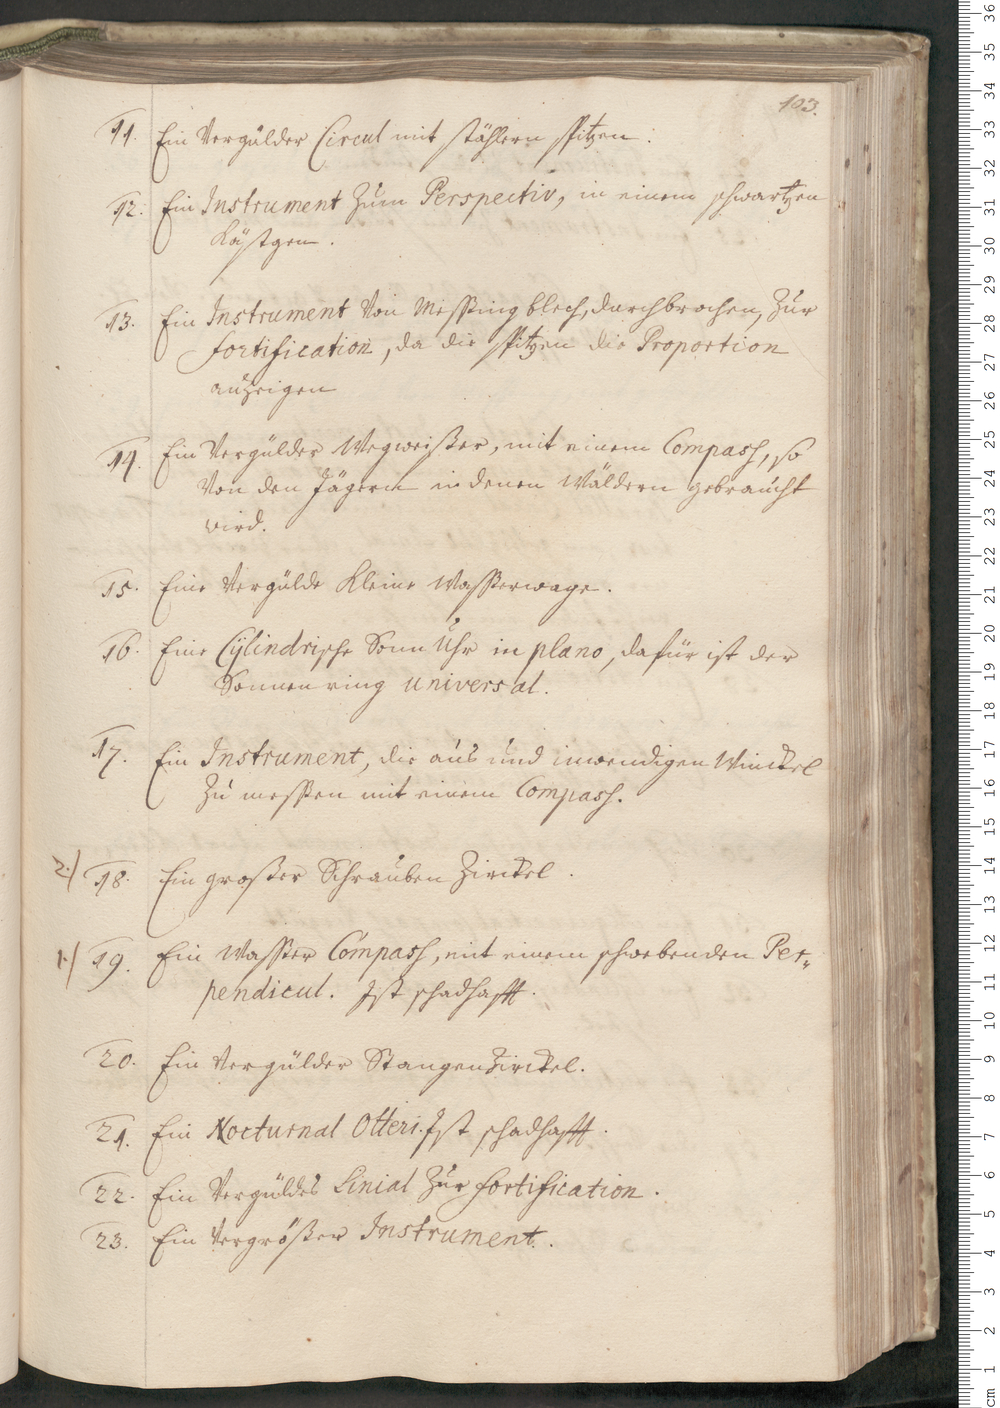 103.
11. Ein Vergülder Circul mit stählern spitzen.
12. Ein Instrument Zum Perspectiv, in einem schwartzen
Kästgen.
13. Ein Instrument Von Messing blech, durchbrochen, Zur
fortification, da die spitzen die Proportion
anzeigen
14. Ein Vergülder Wegweißer, mit einem Compass, so
Von den Jägern in denen Wäldern gebraucht
wird.
15. Eine Vergülde Kleine Wasserwage.
16. Eine Cylindrische Sonn Uhr in plano, dafür ist der
Sonnenring universal.
17. Ein Instrument, die aus und inwendigen Winckel
Zu messen mit einem Compass.
2.) 18. Ein großer Schrauben Zirckel.
1.) 19. Ein Wasser Compass, mit einem schwebenden Per„
pendicul. Ist schadhafft.
20. Ein Vergülder StangenZirckel.
21. Ein Nocturnal Otteri. Ist schadhafft.
22. Ein Verguldes Linial Zur fortification.
23. Ein Vergrößer Instrument.
cm 1 2 3 4 5 6 7 8 9 10 11 12 13 14 15 16 17 18 19 20 21 22 23 24 25 26 27 28 29 30 31 32 33 34 35 36